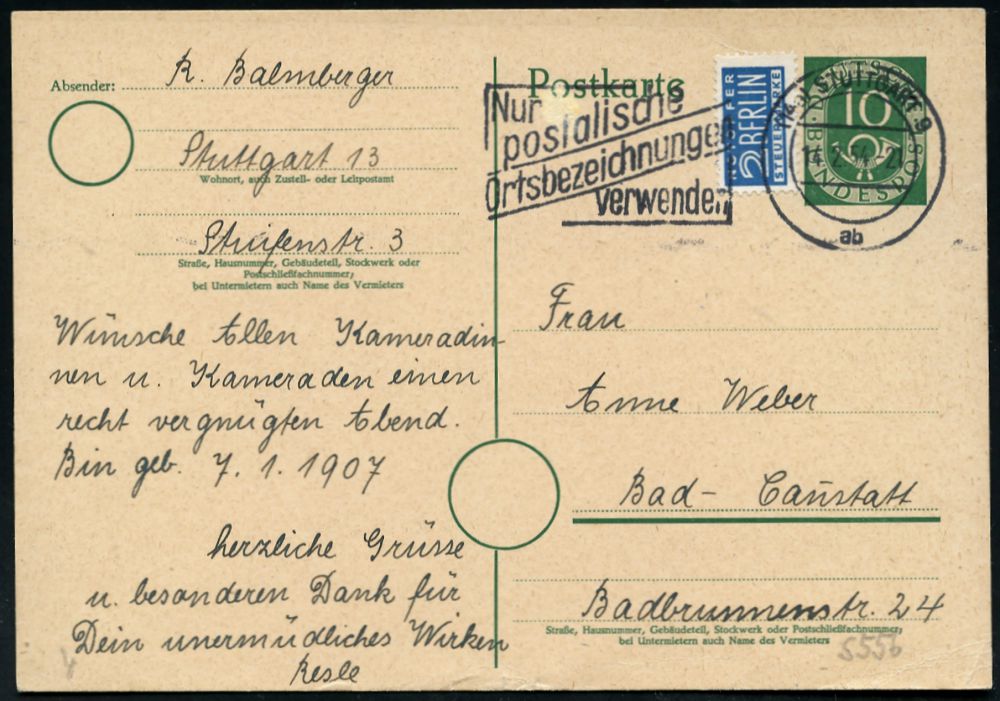 Absender: R. Balmberger
Stuttgart 13
Wohnort, auch Zustell- oder Leitpostamt
Straße, Hausnummer, Gebäudeteil, Stockwerk oder
Postschließfachnummer;
bei Untermietern auch Name des Vermieters
Wünsche Allen Kameradin-
nen u. Kameraden einen
recht vergnügten Abend.
Bin geb. 7. 1. 1907
herzliche Grüsse
u. besonderen Dank für
Dein unermüdliches Wirken
Resle
Postkarte
Nur
postalische
Ortsbezeichnungen
verwenden
NOTOPFER
2 BERLIN
STEUERMARKE
DEUTSCHE
10
BUNDESPOST
STUTTGART 9
ab
Frau
Anne Weber
Bad- Canstatt
Badbrunnenstr. 24
Straße, Hausnummer, Gebäudeteil, Stockwerk oder Postschließfachnummer;
bei Untermietern auch Name des Vermieters